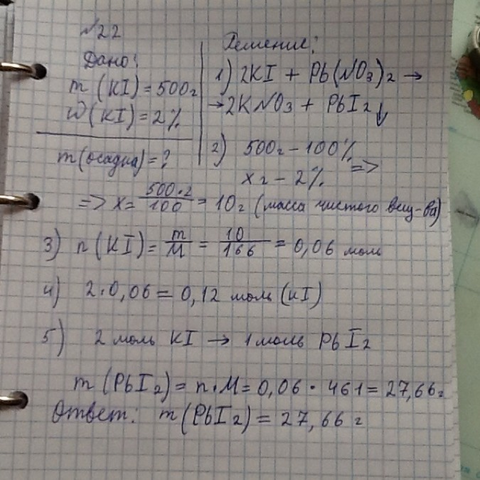 №22
Дано:
m (KI) = 500г
ω(KI) = 2%
m(осадка) = ?
Решение:
1) 2KI + Pb(NO3)2 →
→ 2KNO3 + PbI2↓
2) 500г - 100% =>
x г - 2%
=> x = 500·2/100 = 10г (масса чистого вещ-ва)
3) n(KI) = m/M = 10/166 = 0,06 моль
4) 2·0,06 = 0,12 моль (KI)
5) 2 моль KI → 1 моль PbI2
m (PbI2) = n·M = 0,06 · 461 = 27,66г
Ответ: m(PbI2) = 27,66 г